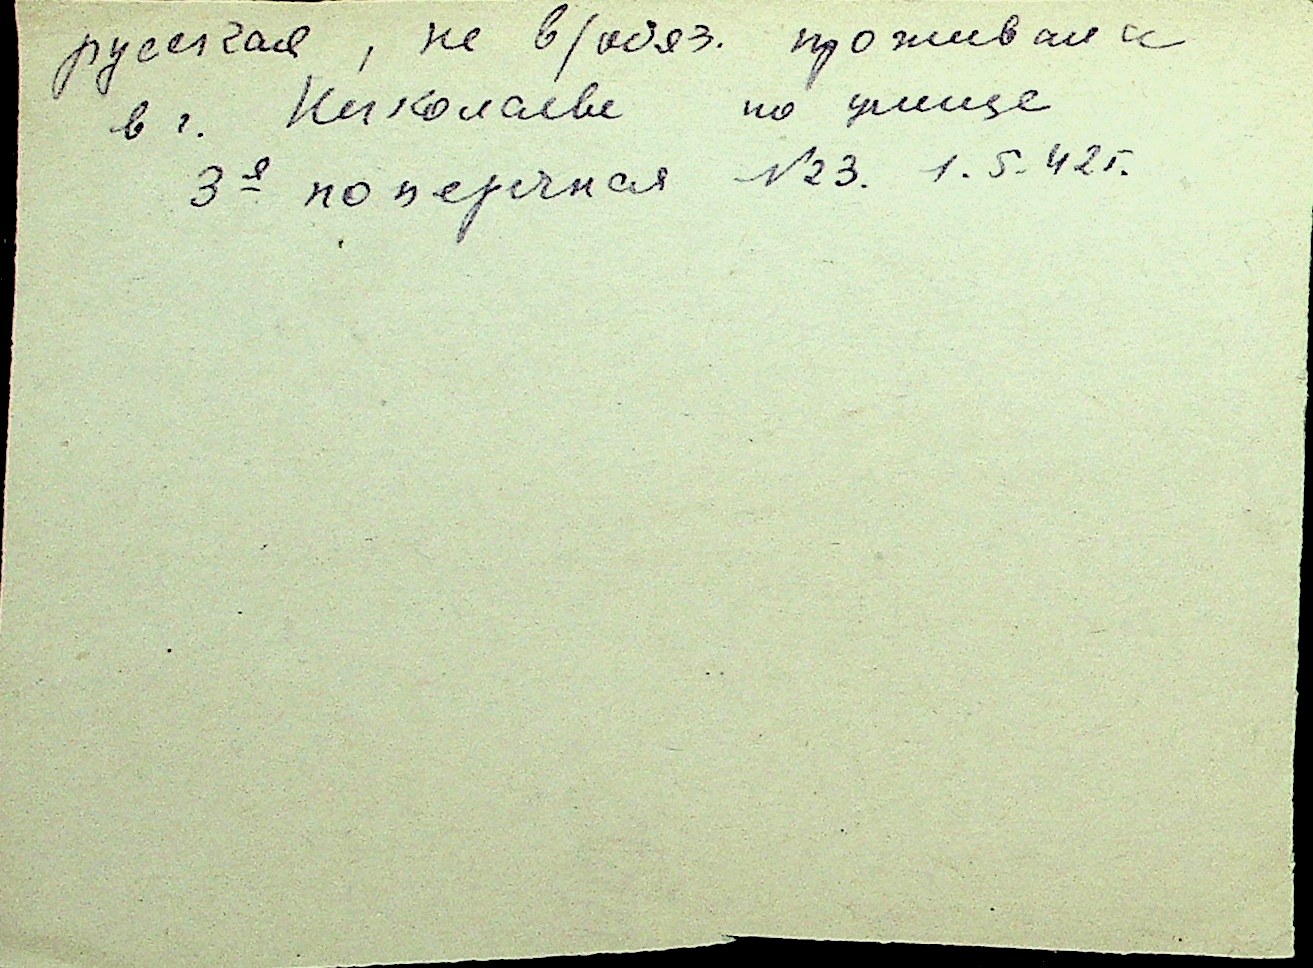 русская, не в/обяз. проживали
в г. Николаеве по улице
3я поперечная №23. 1.5.42г.